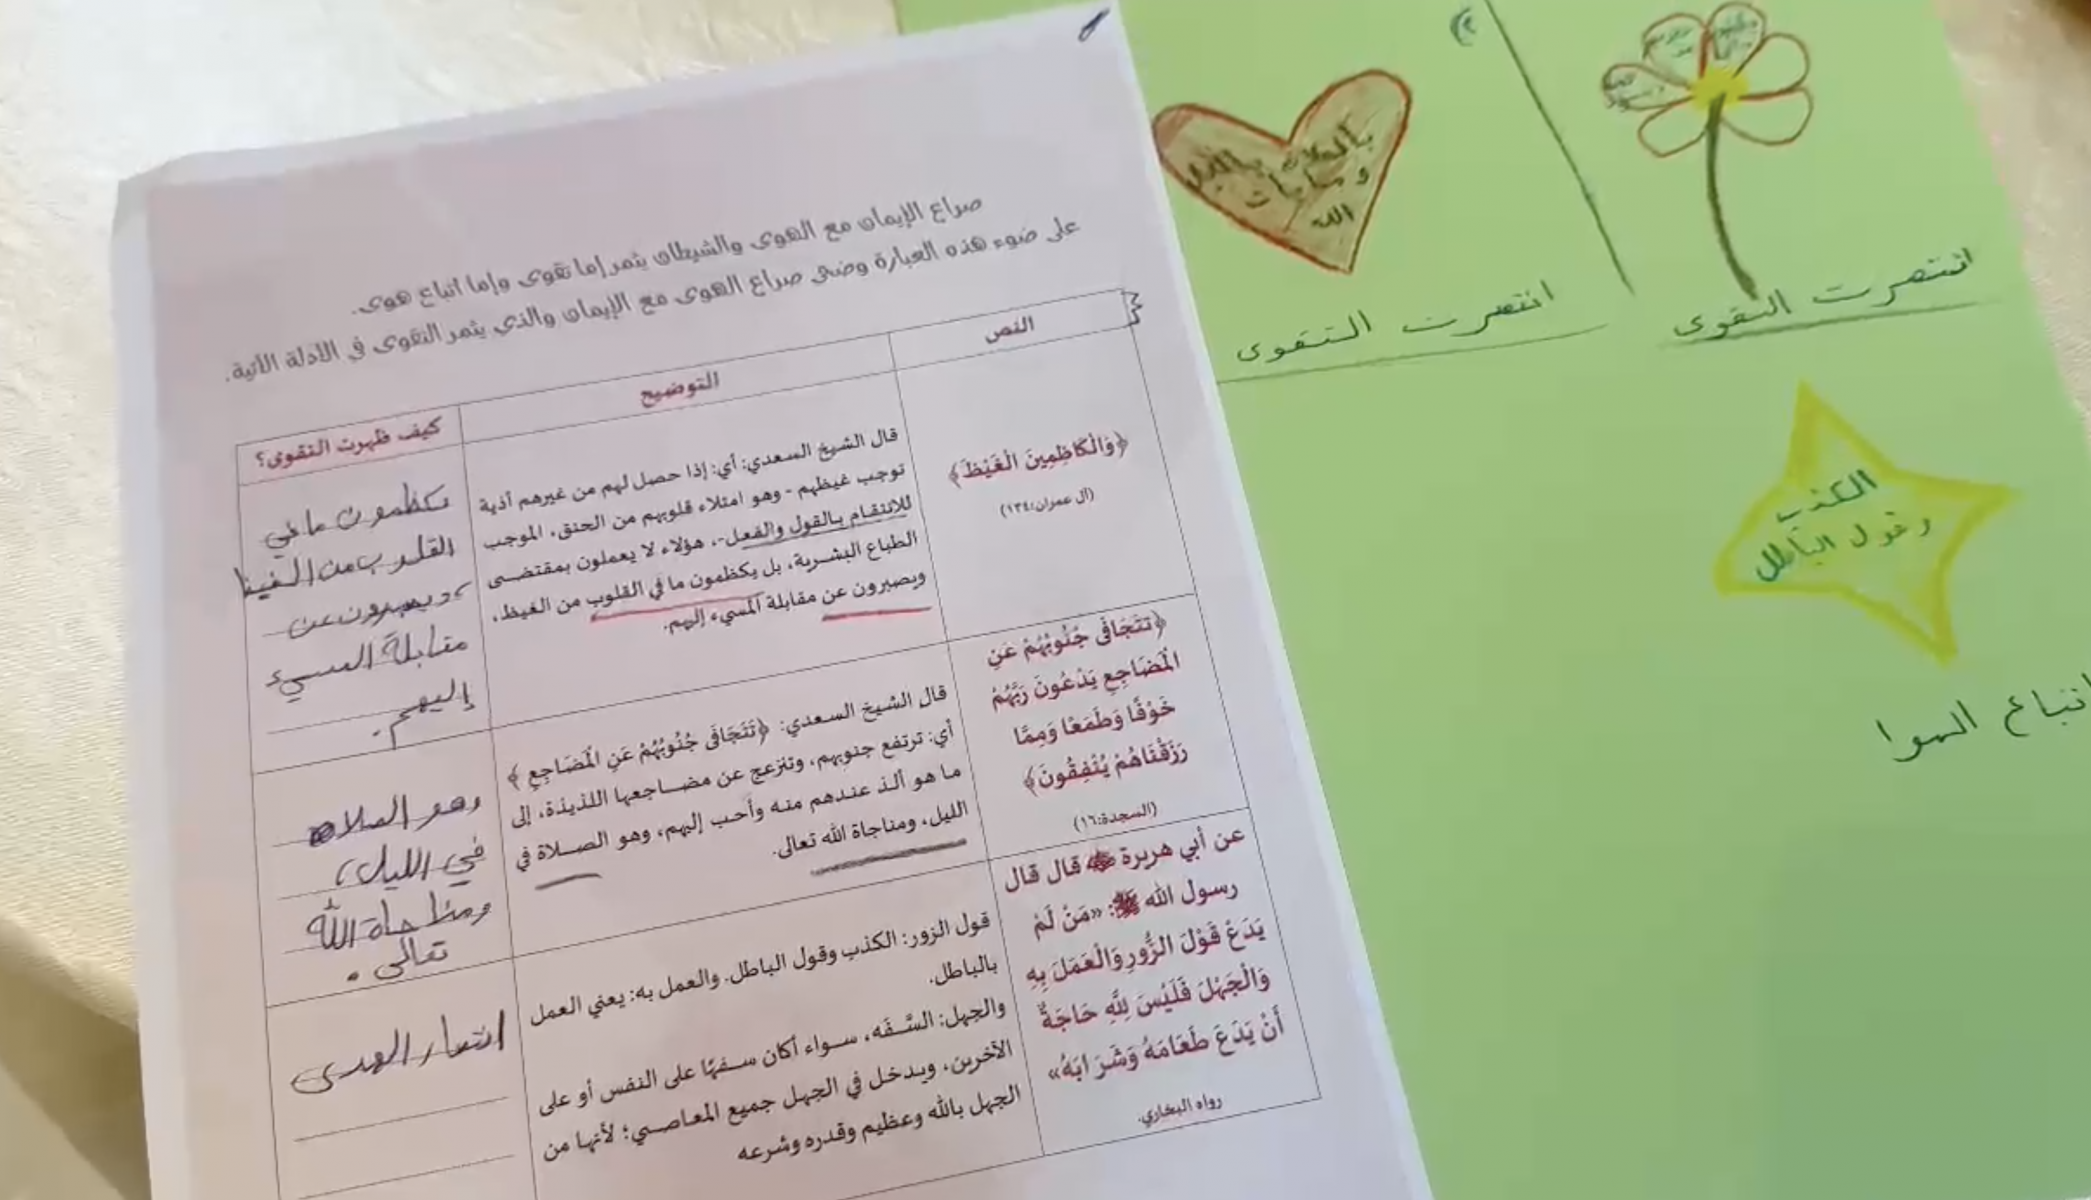 صراع الإيمان مع الهوى والشيطان يثمر إما تقوى وإما اتباع هوى.
على ضوء هذه العبارة وضحى صراع الهوى مع الإيمان والذي يثمر التقوى في الأدلة الآتية.
النص
التوضيح
كيف ظهرت التقوى؟
﴿وَالْكَاظِمِينَ الْغَيْظَ﴾
(آل عمران:١٣٤)
قال الشيخ السعدي: أي: إذا حصل لهم من غيرهم أذية
توجب غيظهم - وهو امتلاء قلوبهم من الحنق، الموجب
للانتقام بالقول والفعل-، هؤلاء لا يعملون بمقتضى
الطباع البشرية، بل يكظمون ما في القلوب من الغيظ،
ويصبرون عن مقابلة المسيء إليهم.
يكظمون ما في
القلوب من الغيظ
ويصبرون عن
مقابلة المسيء
إليهم.
﴿تَتَجَافَى جُنُوبُهُمْ عَنِ
الْمَضَاجِعِ يَدْعُونَ رَبَّهُمْ
خَوْفًا وَطَمَعًا وَمِمَّا
رَزَقْنَاهُمْ يُنْفِقُونَ﴾
(السجدة:١٦)
قال الشيخ السعدي: ﴿تَتَجَافَى جُنُوبُهُمْ عَنِ الْمَضَاجِعِ﴾
أي: ترتفع جنوبهم، وتنزعج عن مضاجعها اللذيذة، إلى
ما هو ألذ عندهم منه وأحب إليهم، وهو الصلاة في
الليل، ومناجاة الله تعالى.
وهو الصلاه
في الليل،
ومناجاة الله
تعالى.
عن أبي هريرة ﷺ قال قال
رسول الله ﷺ: «مَنْ لَمْ
يَدَعْ قَوْلَ الزُّورِ وَالْعَمَلَ بِهِ
وَالْجَهْلَ فَلَيْسَ لِلَّهِ حَاجَةٌ
أَنْ يَدَعَ طَعَامَهُ وَشَرَابَهُ»
رواه البخاري.
قول الزور: الكذب وقول الباطل. والعمل به: يعني العمل
بالباطل.
والجهل: السَّفَه، سواء أكان سفهًا على النفس أو على
الآخرين، ويدخل في الجهل جميع المعاصي؛ لأنها من
الجهل بالله وعظيم وقدره وشرعه
انتصار الهوى
الله
انتصرت التقوى
انتصرت التقوى
الكذب
وقول الباطل
اتباع الهوا